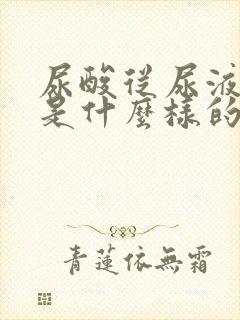 尿酸從尿液
是什麼樣的
青蓮依無霜